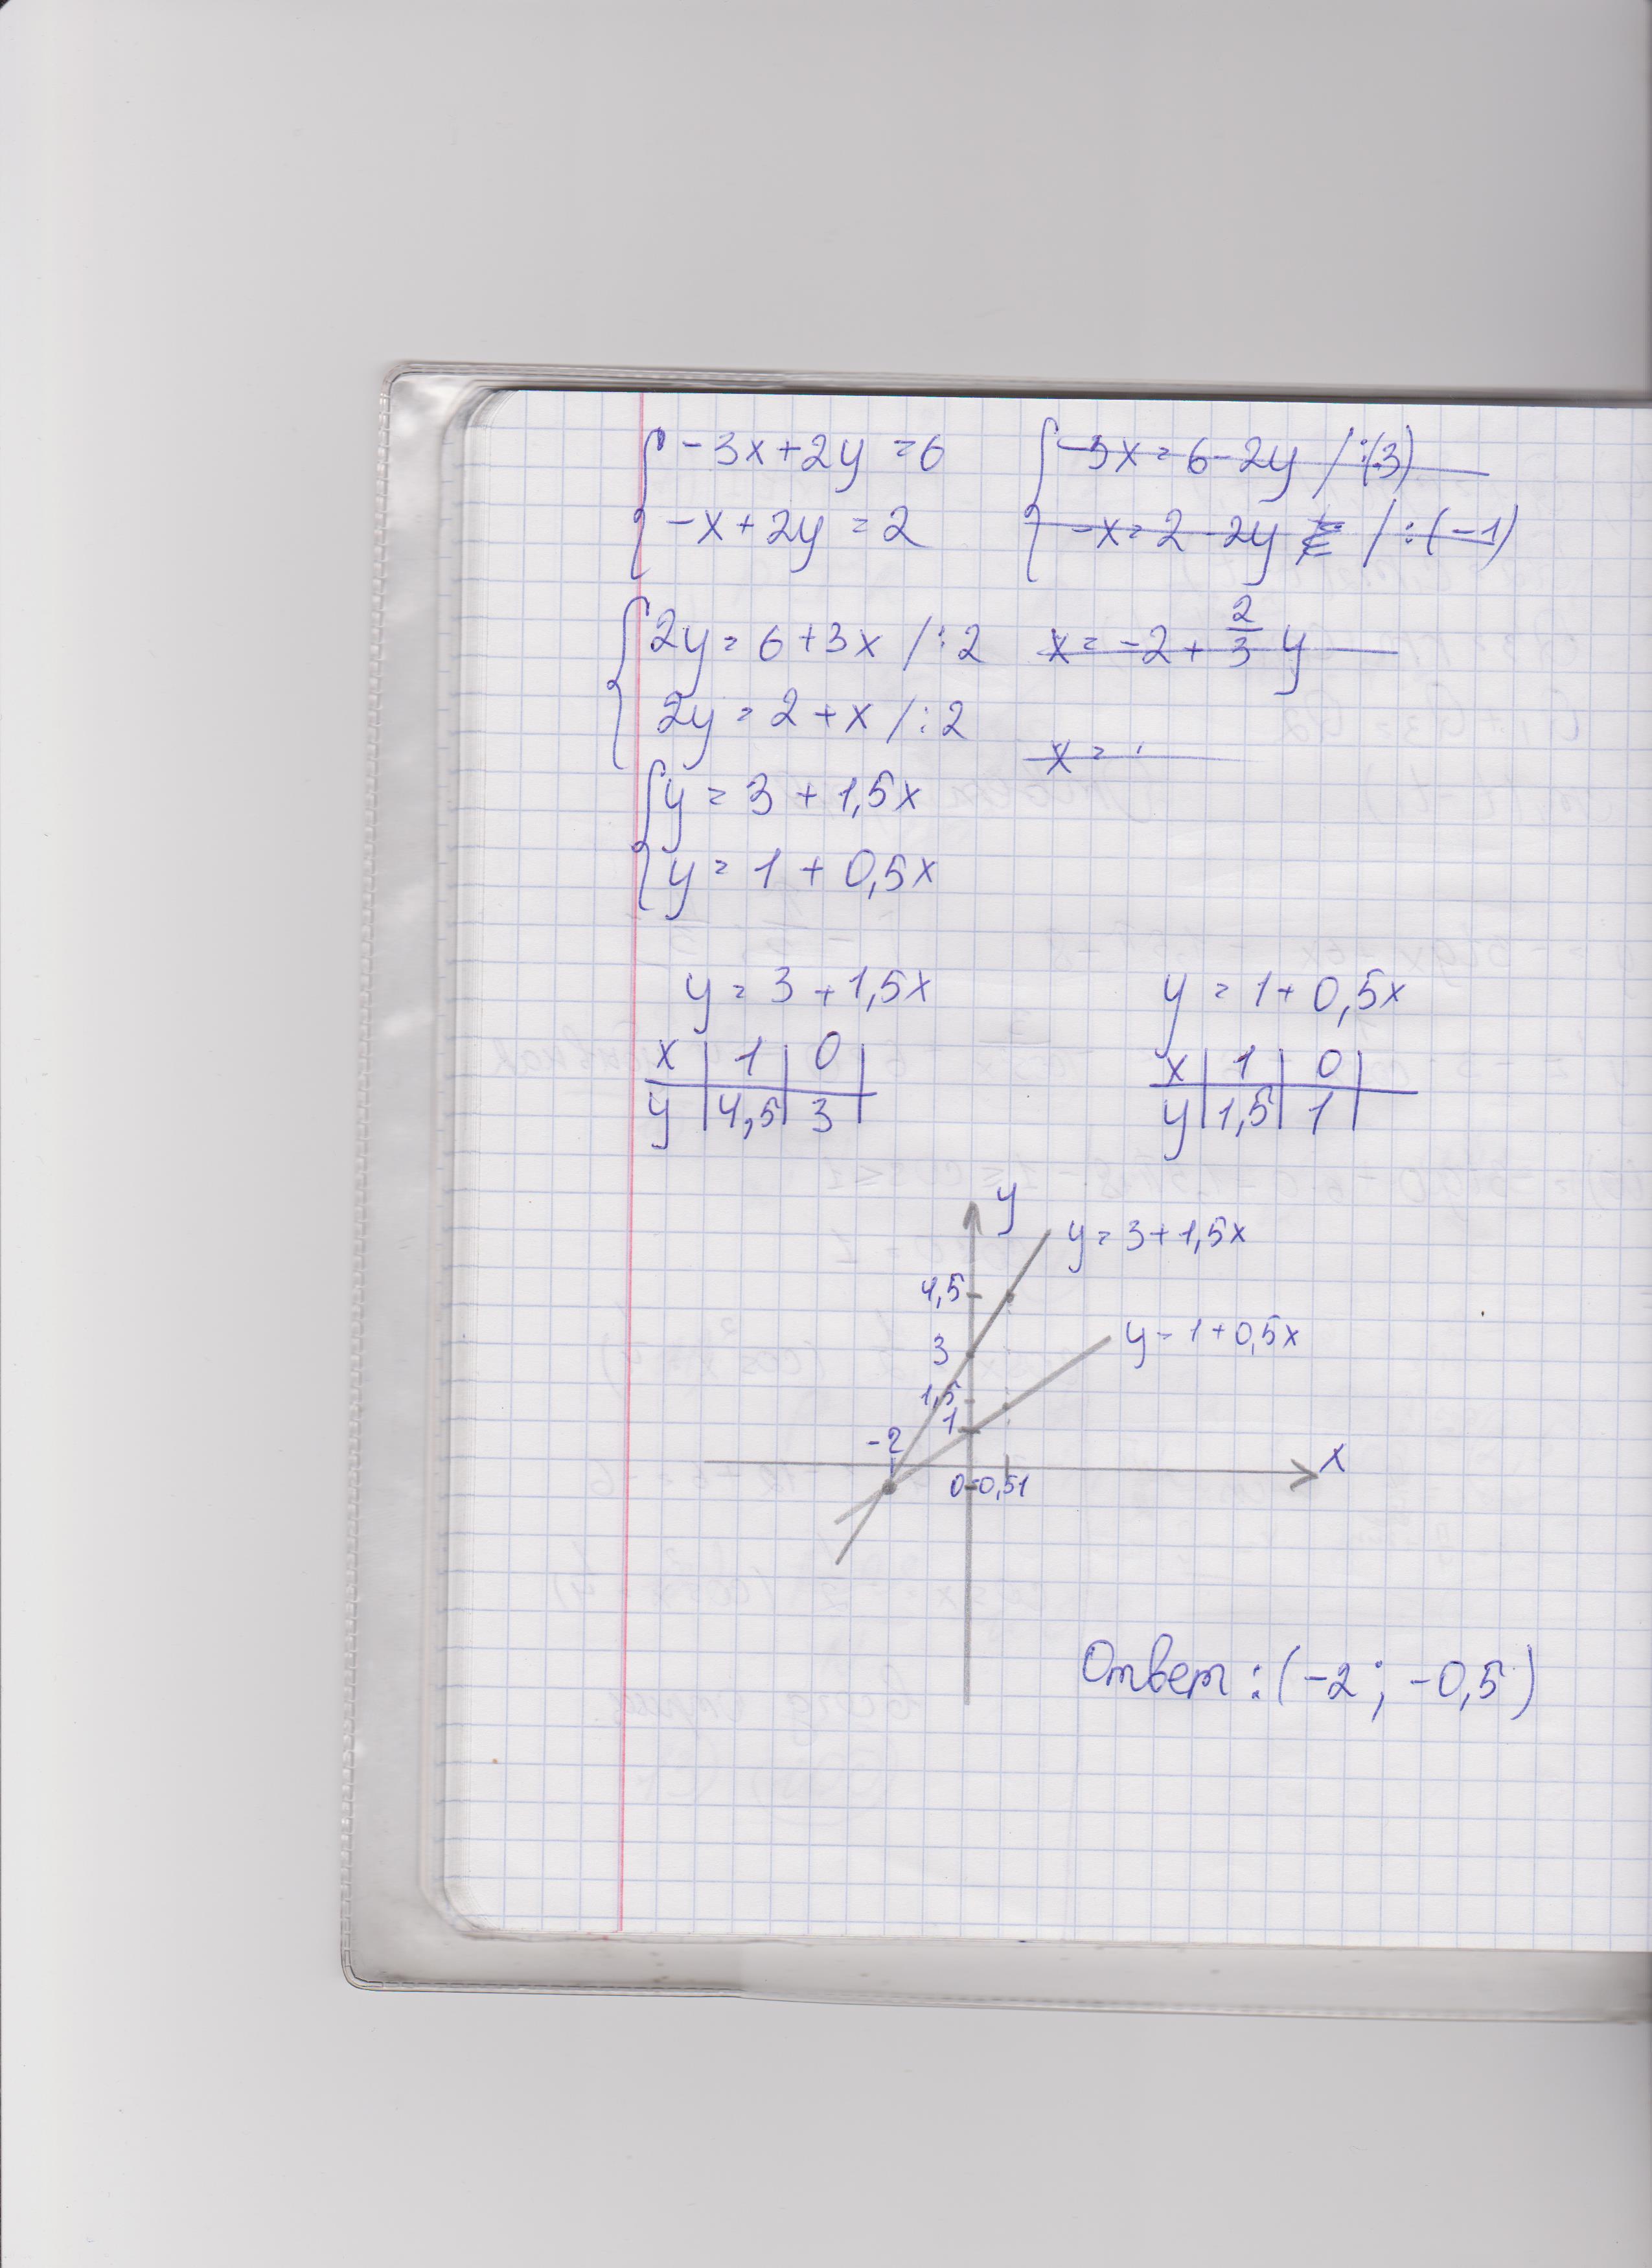 -3x+2y=6
-x+2y=2
-3x=6-2y /:(-3)
-x=2-2y /:(-1)
2y=6+3x /:2
2y=2+x /:2
x=-2+2/3 y
x=
y=3+1,5x
y=1+0,5x
y=3+1,5x
x | 1 | 0 |
y | 4,5 | 3 |
y=1+0,5x
x | 1 | 0 |
y | 1,5 | 1 |
y
y=3+1,5x
4,5
y=1+0,5x
3
1,5
1
-2
x
0 -0,5 1
Ответ: (-2; -0,5)